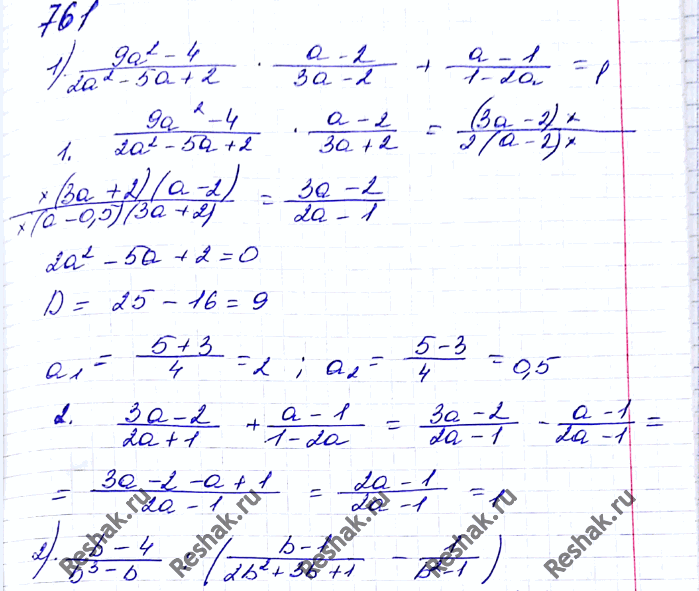 761
1) (9a² - 4)/(2a² - 5a + 2) · (a - 2)/(3a - 2) + (a - 1)/(1 - 2a) = 1
1. (9a² - 4)/(2a² - 5a + 2) · (a - 2)/(3a + 2) = (3a - 2)×/2(a - 2)×
×(3a + 2)(a - 2)/×(a - 0,5)(3a + 2) = (3a - 2)/(2a - 1)
2a² - 5a + 2 = 0
D = 25 - 16 = 9
a₁ = (5 + 3)/4 = 2 ; a₂ = (5 - 3)/4 = 0,5
2. (3a - 2)/(2a + 1) + (a - 1)/(1 - 2a) = (3a - 2)/(2a - 1) - (a - 1)/(2a - 1) =
= (3a - 2 - a + 1)/(2a - 1) = (2a - 1)/(2a - 1) = 1
2) (b - 4)/(b³ - b) : ((b - 1)/(2b² + 3b + 1) - 1/(b² - 1))
Reshak.ru
Reshak.ru
Reshak.ru
Reshak.ru
Reshak.ru